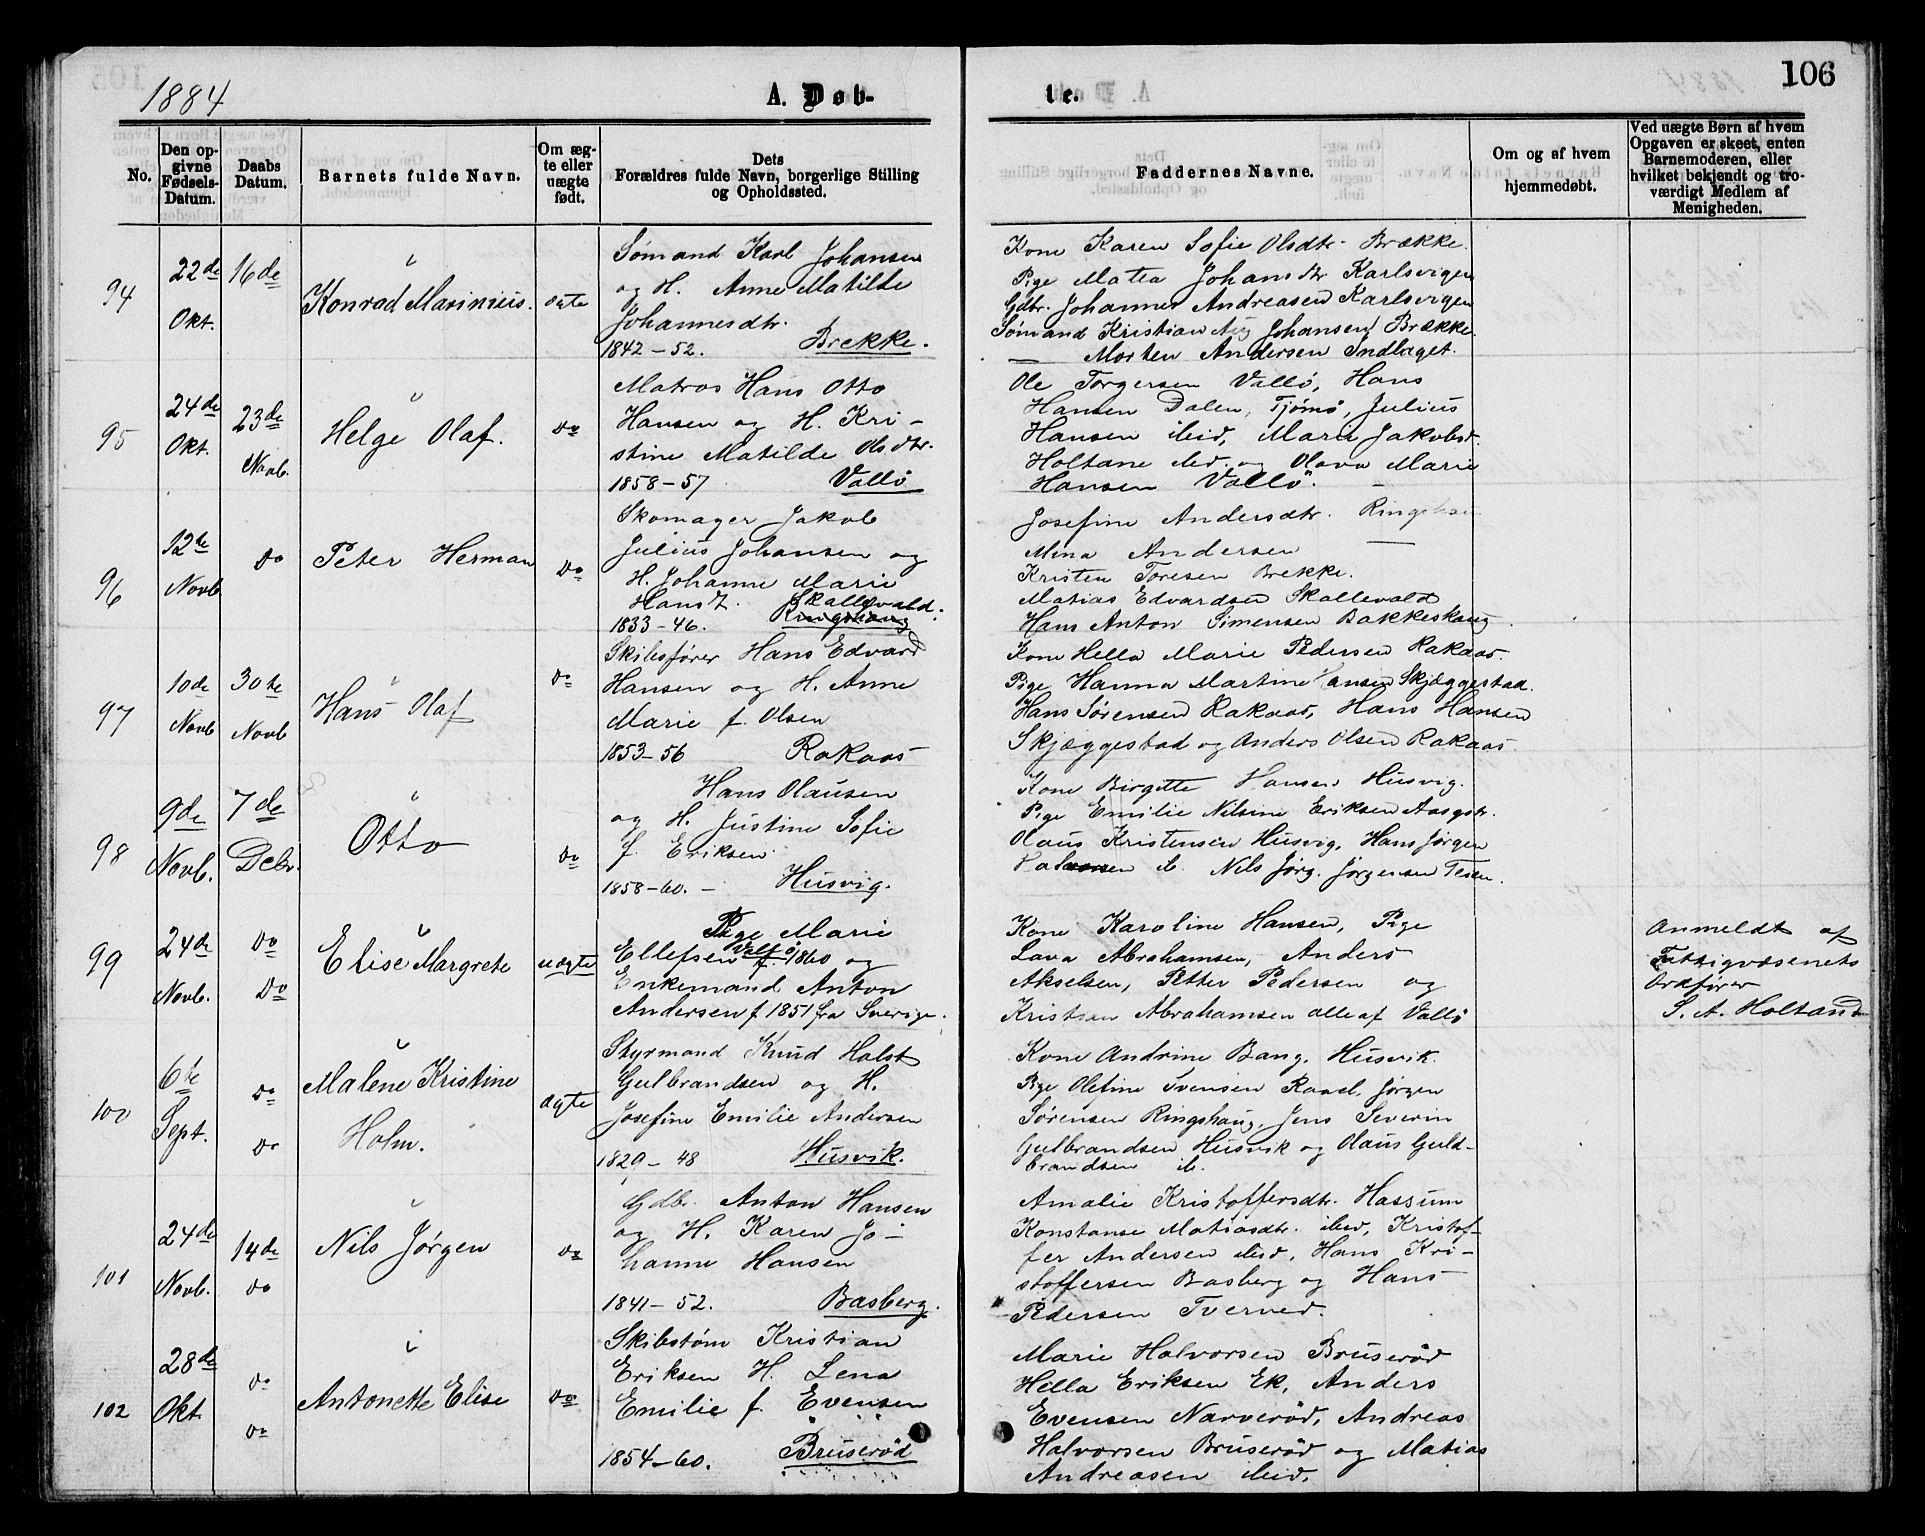 1884
A. Døb-
te.
106
No.
Den op-
givne
Fødsels-
Datum.
Daabs
Datum.
Barnets fulde Navn.
Om æg-
te eller
uægte
født.
Dets
Forældres fulde Navn, borgerlige Stilling
og Opholdssted.
Faddernes Navne.
Om og af hvem
hjemmedøbt.
Ved uægte Børn af hvem
Opgaven er skeet, enten
Barnemoderen, eller
hvilket bekjendt og tro-
værdigt Medlem af
Menigheden.
94
22de
Okt.
16de
Konrad Marinius.
ægte
Sømand Karl Johansen
og H. Anne Matilde
Johannesdtr.
1842-52. Brekke.
Kone Karen Sofie Olsdtr. Brække.
Pige Matea Johansdtr Karlsvigen
Gdbr. Johannes Andreasen Karlsvigen
Sømand Kristian Aug Johansen Brække
— Morten Andersen Indlaget.
95
24de
Okt.
23de
Novb.
Helge Olaf.
do
Matros Hans Otto
Hansen og H. Kri-
stine Matilde Olsdtr.
1858-57 Vallö
Ole Torgersen Vallö, Hans
Hansen Dalen, Tjömö, Julius
Hansen ibid, Marie Jakobsd.
Holtane ibid. og Olava Marie
Hansen Vallö.
96
12te
Novb
do
Peter Herman
do
Skomager Jakob
Julius Johansen og
H. Johanne Marie
Hansd. Skallevald.
1833-46. Ringshaug
Josefine Andersdtr.
Mina Andersen —
Kristen Toresen Brekke.
Matias Edvardsen Skallevald
Hans Anton Simensen Bakkeskaug
97
10de
Novb
30te
Novb
Hans Olaf
do
Skibsfører Hans Edvard
Hansen og H. Anne
Marie f. Olsen
1853-56 Rakaas
Kone Hella Marie Pedersen Rakaas.
Pige Hanna Martine Hansen Skjæggestad.
Hans Sørensen Rakaas, Hans Hansen
Skjæggestad og Anders Olsen Rakaas.
98
9de
Novb.
7de
Debr.
Otto
do
Hans Olausen
og H. Justine Sofie
f. Eriksen
1858-60. - Husvig.
Kone Birgitte Hansen Husvig.
Pige Emilie Nilsine Eriksen Aasgstr.
Olaus Kristensen Husvig, Hans Jörgen
ib. Nils Jörg. Jörgensen
99
24de
Novb.
do
do
Elise Margrete
uægte
Pige Marie
Ellefsen Vallö f. 1860 og
Enkemand Anton
Andersen f. 1851 fra Sverige.
Kone Karoline Hansen, Pige
Lava Abrahamsen, Anders
Akselsen, Petter Pedersen og
Kristian Abrahamsen alle af Vallö
Anmeldt af
Fattigvæsenets
Ordfører
S. A. Holtand
100
6te
Sept.
do
do
Malene Kristine
Holm.
ægte
Styrmand Knud Holst
Gulbrandsen og H.
Josefine Emilie Andersen
1829-48 Husvik.
Kone Andrine Bang, Husvik.
Pige Olefine Svensen Raael, Jörgen
Sörensen Ringshaug, Jens Severin
Gulbrandsen Husvik og Olaus Guld-
brandsen ib.
101
24de
Novb.
14de
do
Nils Jörgen
do
Gdbr. Anton Hansen
og H. Karen Jo-
hanne Hansen
1841-52. Basberg.
Amalie Kristoffersdtr. Hassum
Konstanse Matiasdtr. ibid, Kristof-
fer Andersen ibid, Hans Kri-
stoffersen Basberg og Hans
Pedersen Tverved.
102
28de
Okt.
do
do
Antonette Elise
do
Skibstöm Kristian
Eriksen H. Lena
Emilie f. Evensen
1854-60. Bruseröd
Marie Halvorsen Bruseröd
Hella Eriksen Ek, Anders
Evensen Narveröd, Andreas
Halvorsen Bruseröd og Matias
Andreasen ibid.